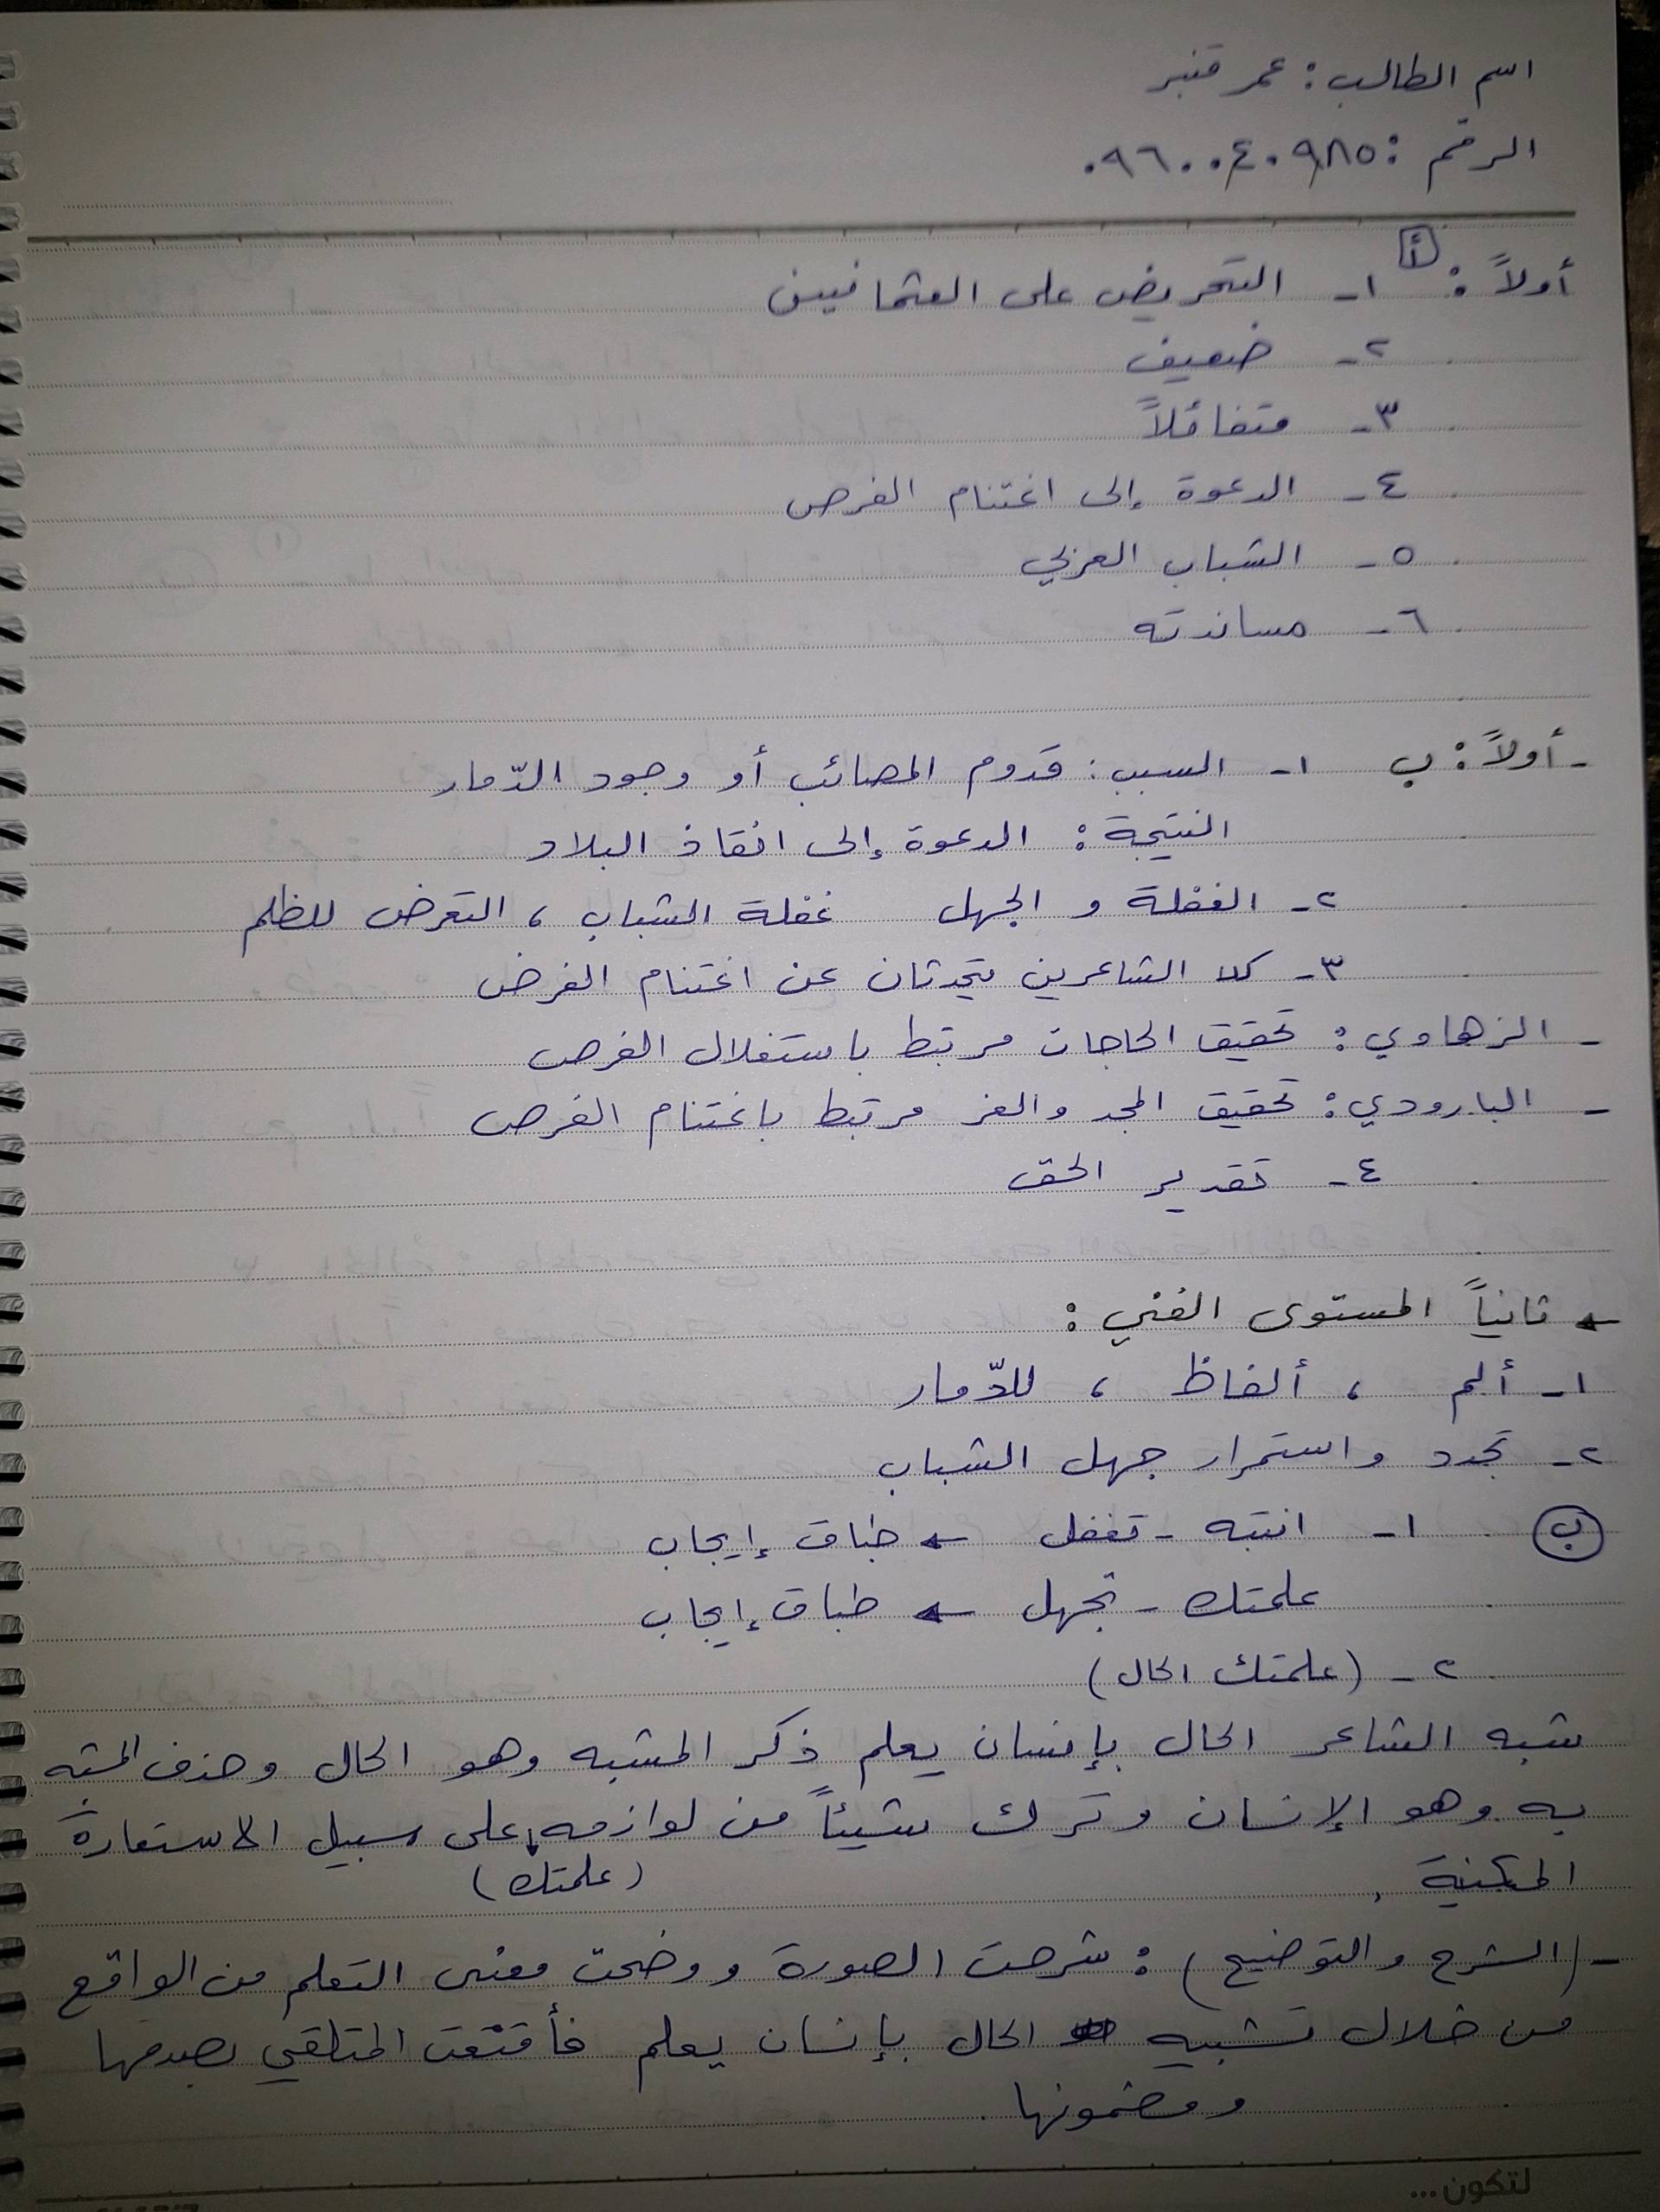 اسم الطالب: عمر قنبر
الرقم: ٠٩٦٠٠٤٠٩٨٥
أولاً: أ ١- التحريض على العثمانيين
٢- ضعيف
٣- متفائلاً
٤- الدعوة إلى اغتنام الفرص
٥- الشباب العربي
٦- مساندته
- أولاً: ب ١- السبب: قدوم المصائب أو وجود الدّمار
النتيجة: الدعوة إلى انقاذ البلاد
٢- الغفلة و الجهل غفلة الشباب ، التعرض للظلم
٣- كلا الشاعرين يتحدثان عن اغتنام الفرض
- الزهاوي: تحقيق الحاجات مرتبط باستغلال الفرص
- البارودي: تحقيق المجد والعز مرتبط باغتنام الفرص
٤- تقدير الحق
← ثانياً المستوى الفني:
١- ألم ، ألفاظ ، للدّمار
٢- تجدد واستمرار جهل الشباب
ب ١- انتبه - تغفل ← طباق إيجاب
علمتك - تجهل ← طباق إيجاب
٢- (علمتك الحال)
شبه الشاعر الحال بإنسان يعلم ذكر المشبه وهو الحال وحذف المشبه
به وهو الإنسان وترك شيئاً من لوازمه على سبيل الاستعارة
المكنية. (علمتك)
- (الشرح والتوضيح): شرحت الصورة ووضحت معنى التعلم من الواقع
من خلال تشبيه الحال بإنسان يعلم فأقنعت المتلقي بصدقها
ومضمونها.
لتكون...